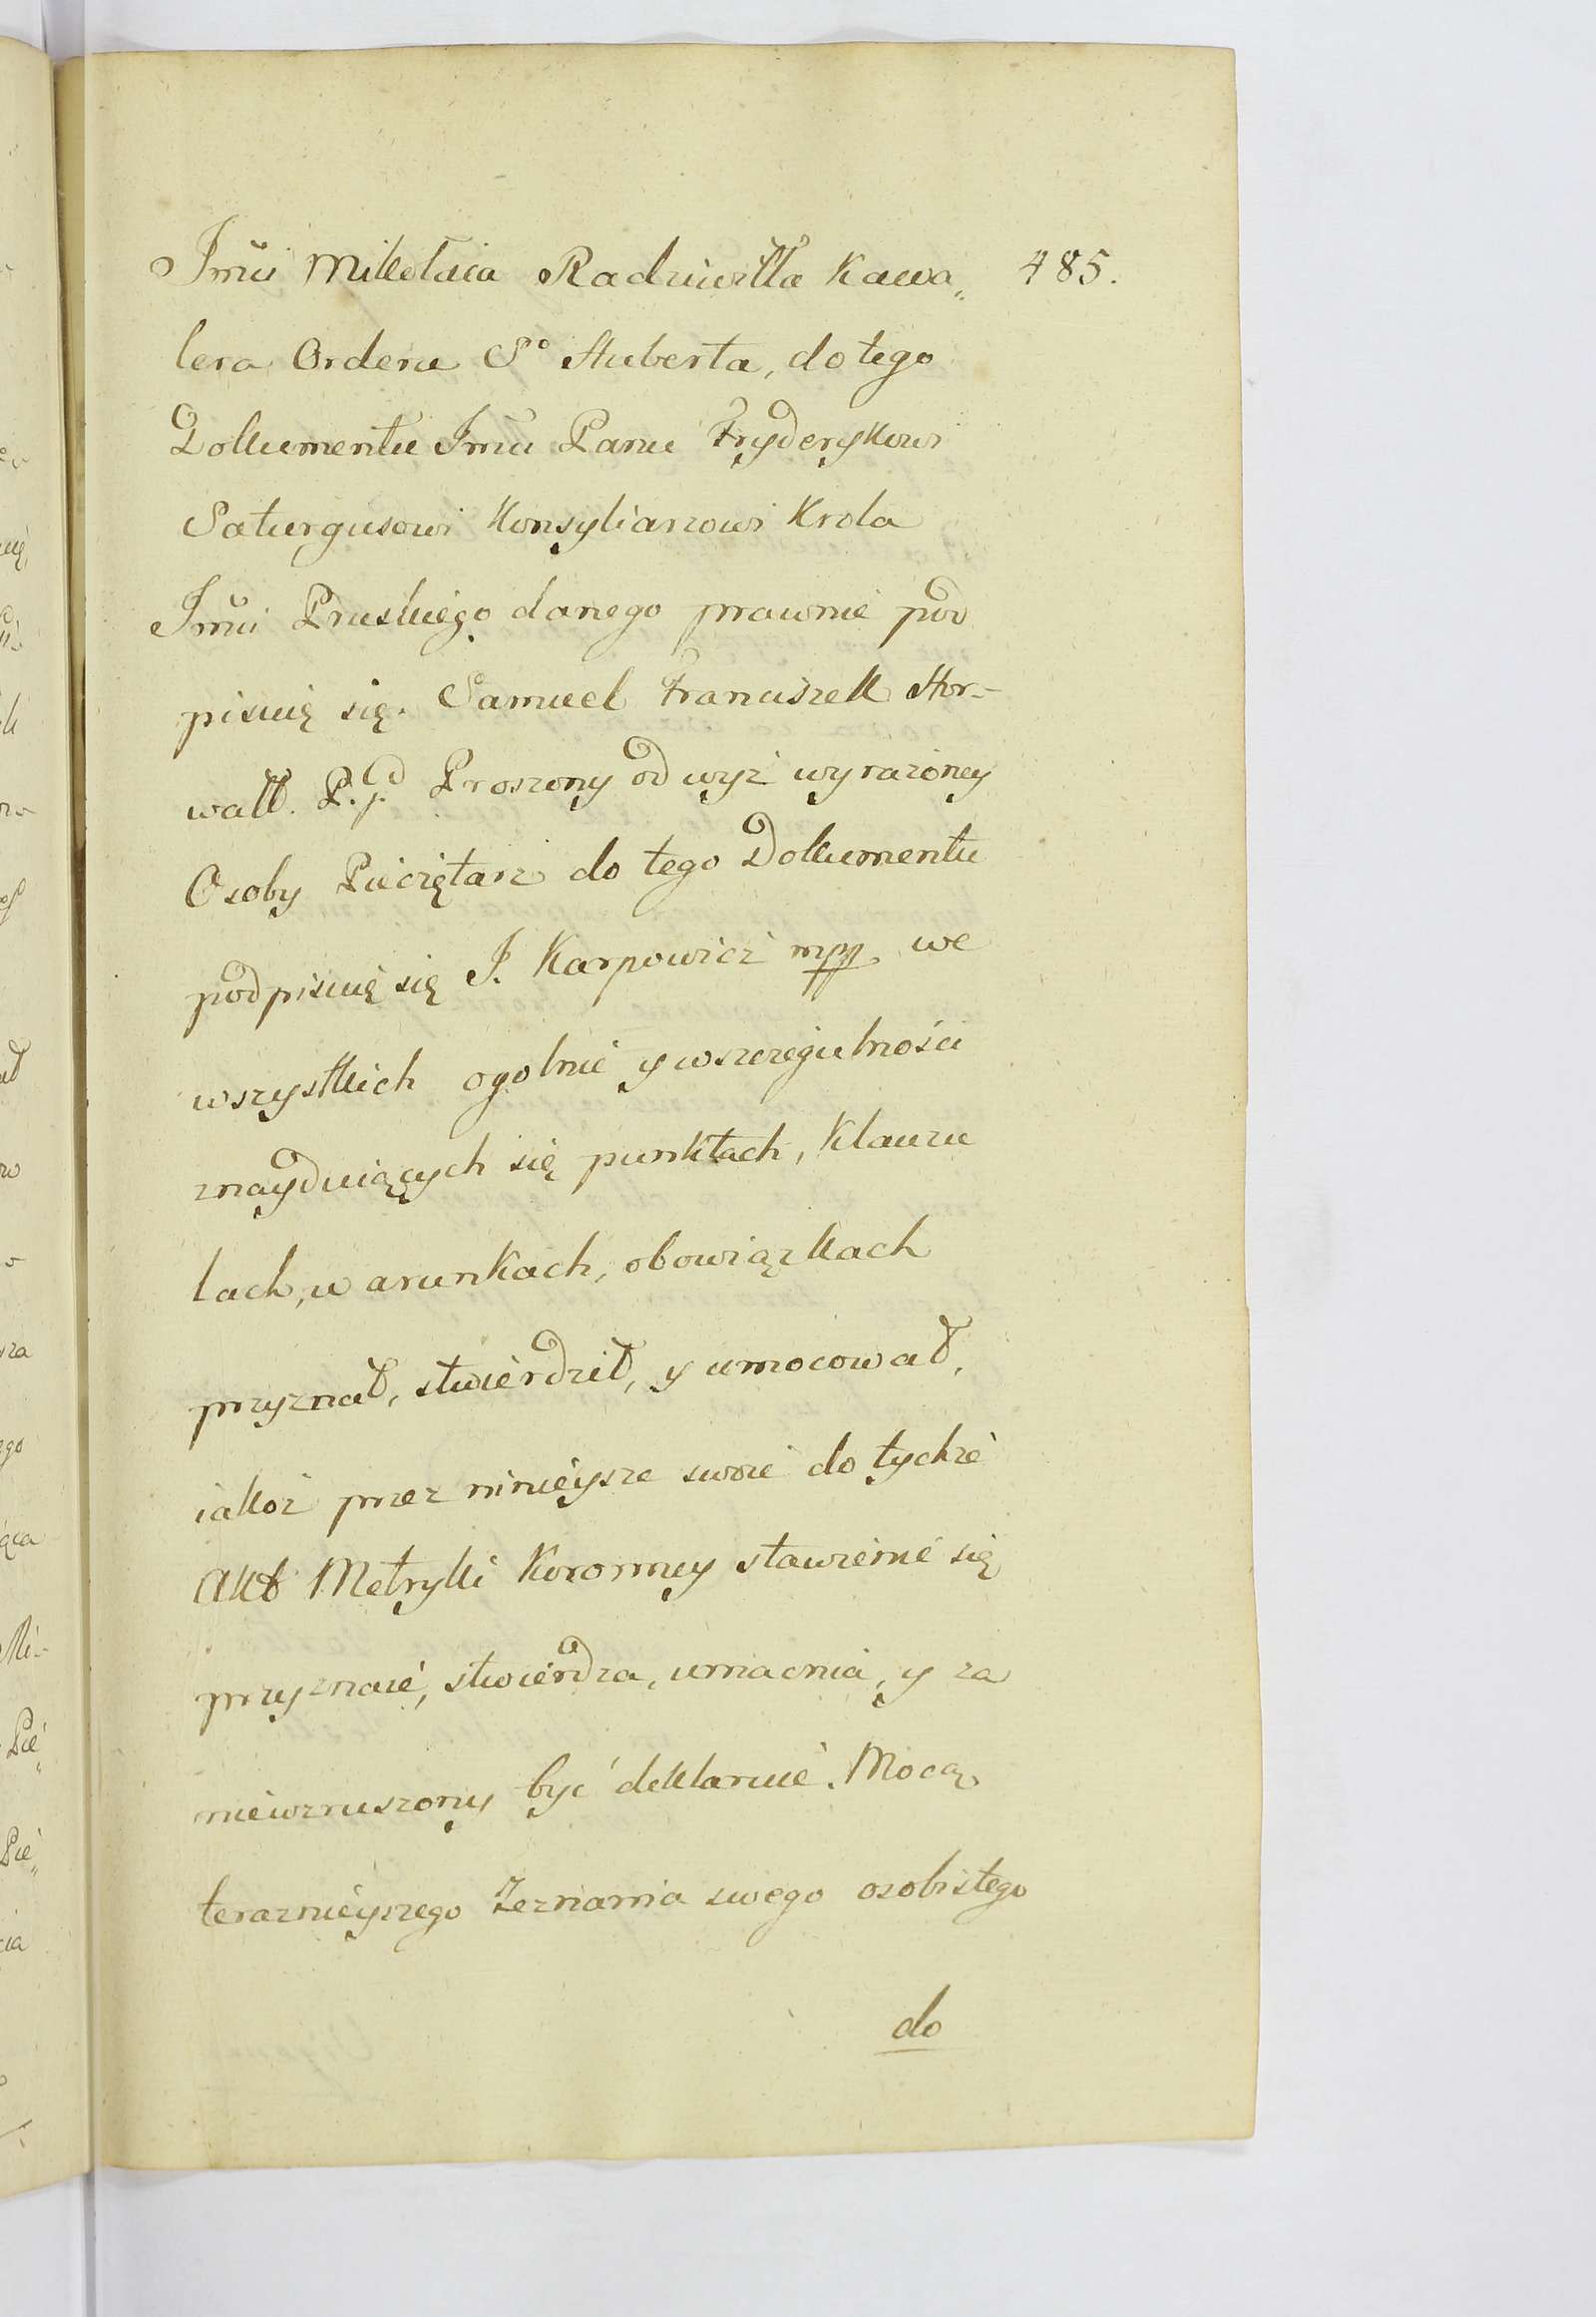 Jmći Mikołaia Radziwiłła Kawa„ 485.
lera Orderu So Huberta, do tego
Dokumentu Jmći Panu Fryderykowi
Saturgusowi Konsyliarzowi Krola
Jmći Pruskiego danego prawnie pod
pisuię się. Samuel Franciszek Hor-
watt. P. p. Proszony od wyż wyrażoney
Osoby Pieczętarz do tego Dokumentu
podpisuię się J. Karpowicz mpp we
wszystkich ogolnie y wszczegulności
znayduiących się punktach, Klauzu
lach, warunkach, obowiązkach
przyznał, stwierdził, y umocował,
iakoż przez ninieysze swoie do tychże
Akt Metryki Koronney stawienie się
przyznaie, stwierdza, umacnia, y za
niewzruszony być deklaruie. Mocą
teraznieyszego Zeznania swego osobistego
do